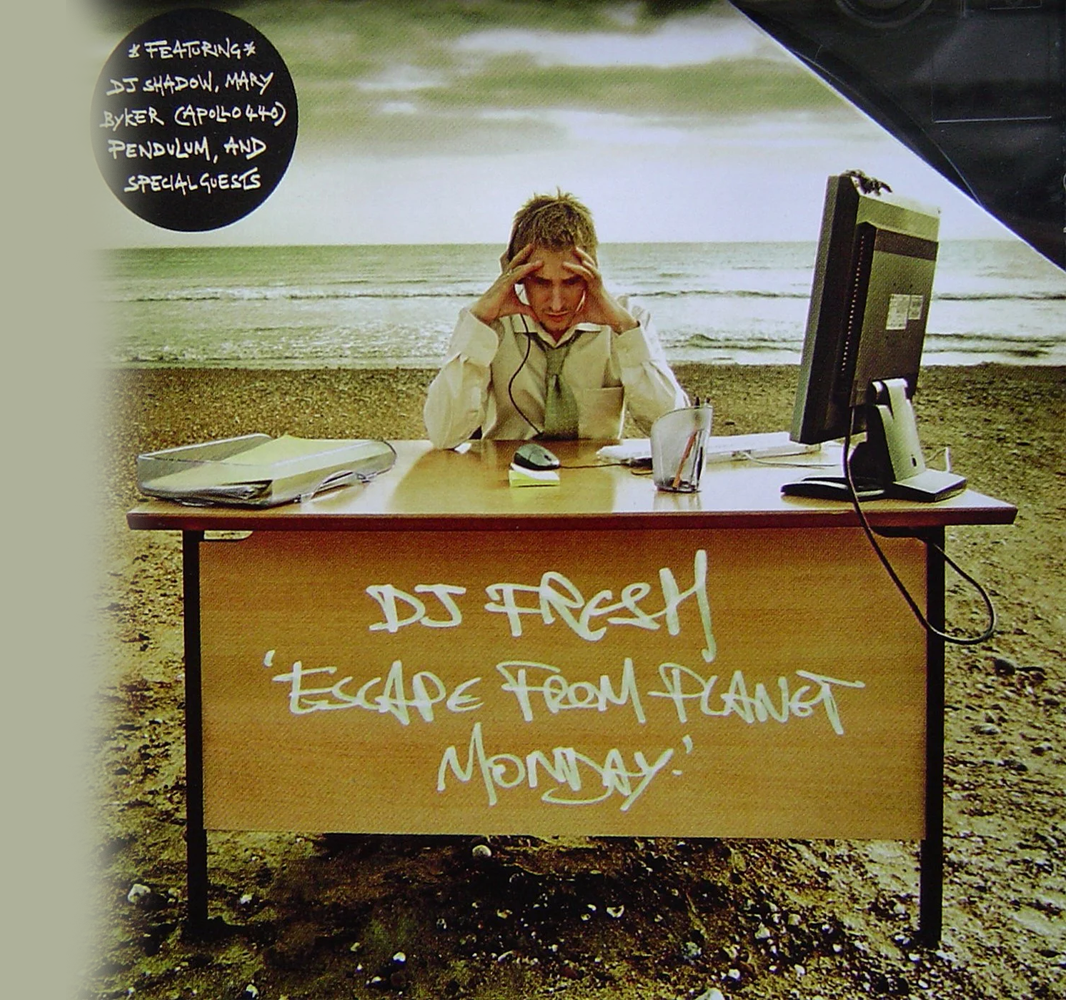 * FEATURING *
DJ SHADOW, MARY
BYKER (APOLLO 440)
PENDULUM, AND
SPECIAL GUESTS
DJ FRESH
'ESCAPE FROM PLANET
MONDAY.'